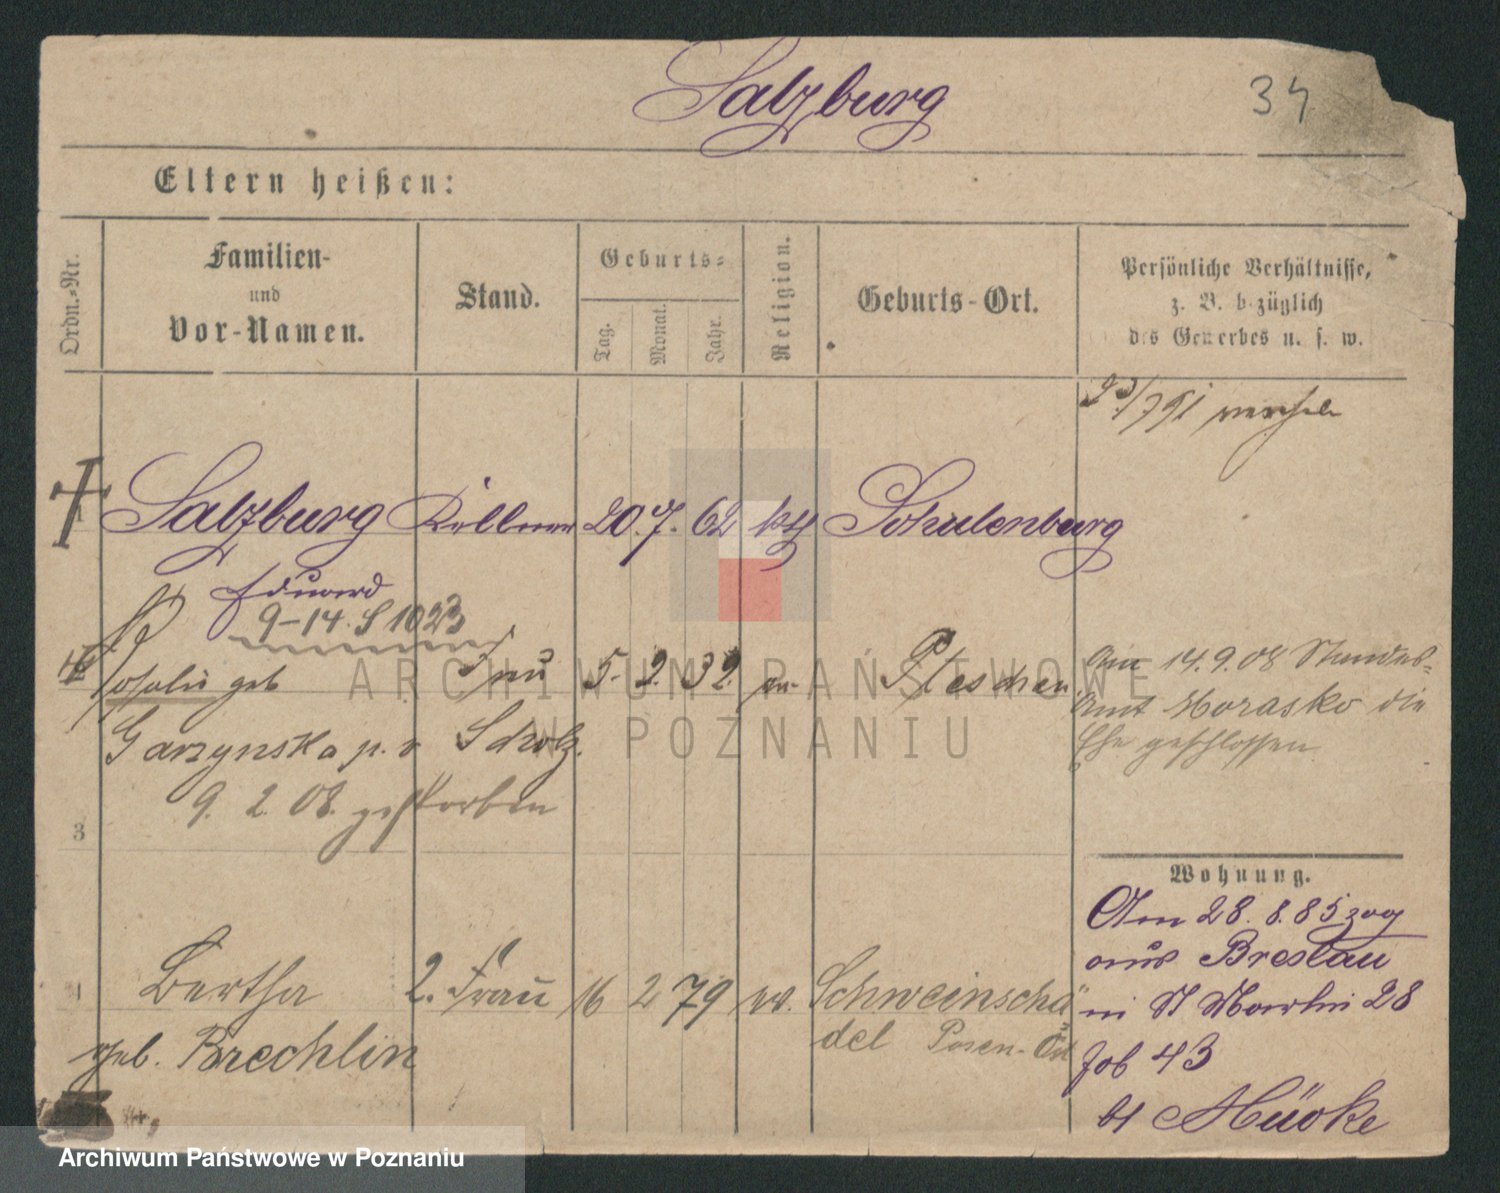 Salzburg
34
Eltern heißen:
Ordn.-Nr.
Familien-
und
Vor-Namen.
Stand.
Geburts-
Tag.
Monat.
Jahr.
Religion.
Geburts-Ort.
Persönliche Verhältnisse,
z. B. bezüglich
des Gewerbes u. s. w.
1 Salzburg Kellner 20. 7. 62 kth Schulenburg
Eduard
9-14. S 1023
Rosalie geb Frau 5. 2. 32. ev. Pleschen
Garzynska p. v. Scholz.
9. 2. 08. gestorben
Am 14.9.08 Standes-
amt Morasko die
Ehe geschlossen
3
Wohnung.
Am 28. 8. 85 zog
aus Breslau
in St Martin 28
Job 43
bei Mücke
4 Bertha 2. Frau 16 2 79 ev. Schweinschä
geb. Brechlin
del Posen-Ost
ARCHIWUM PAŃSTWOWE
W POZNANIU
Archiwum Państwowe w Poznaniu